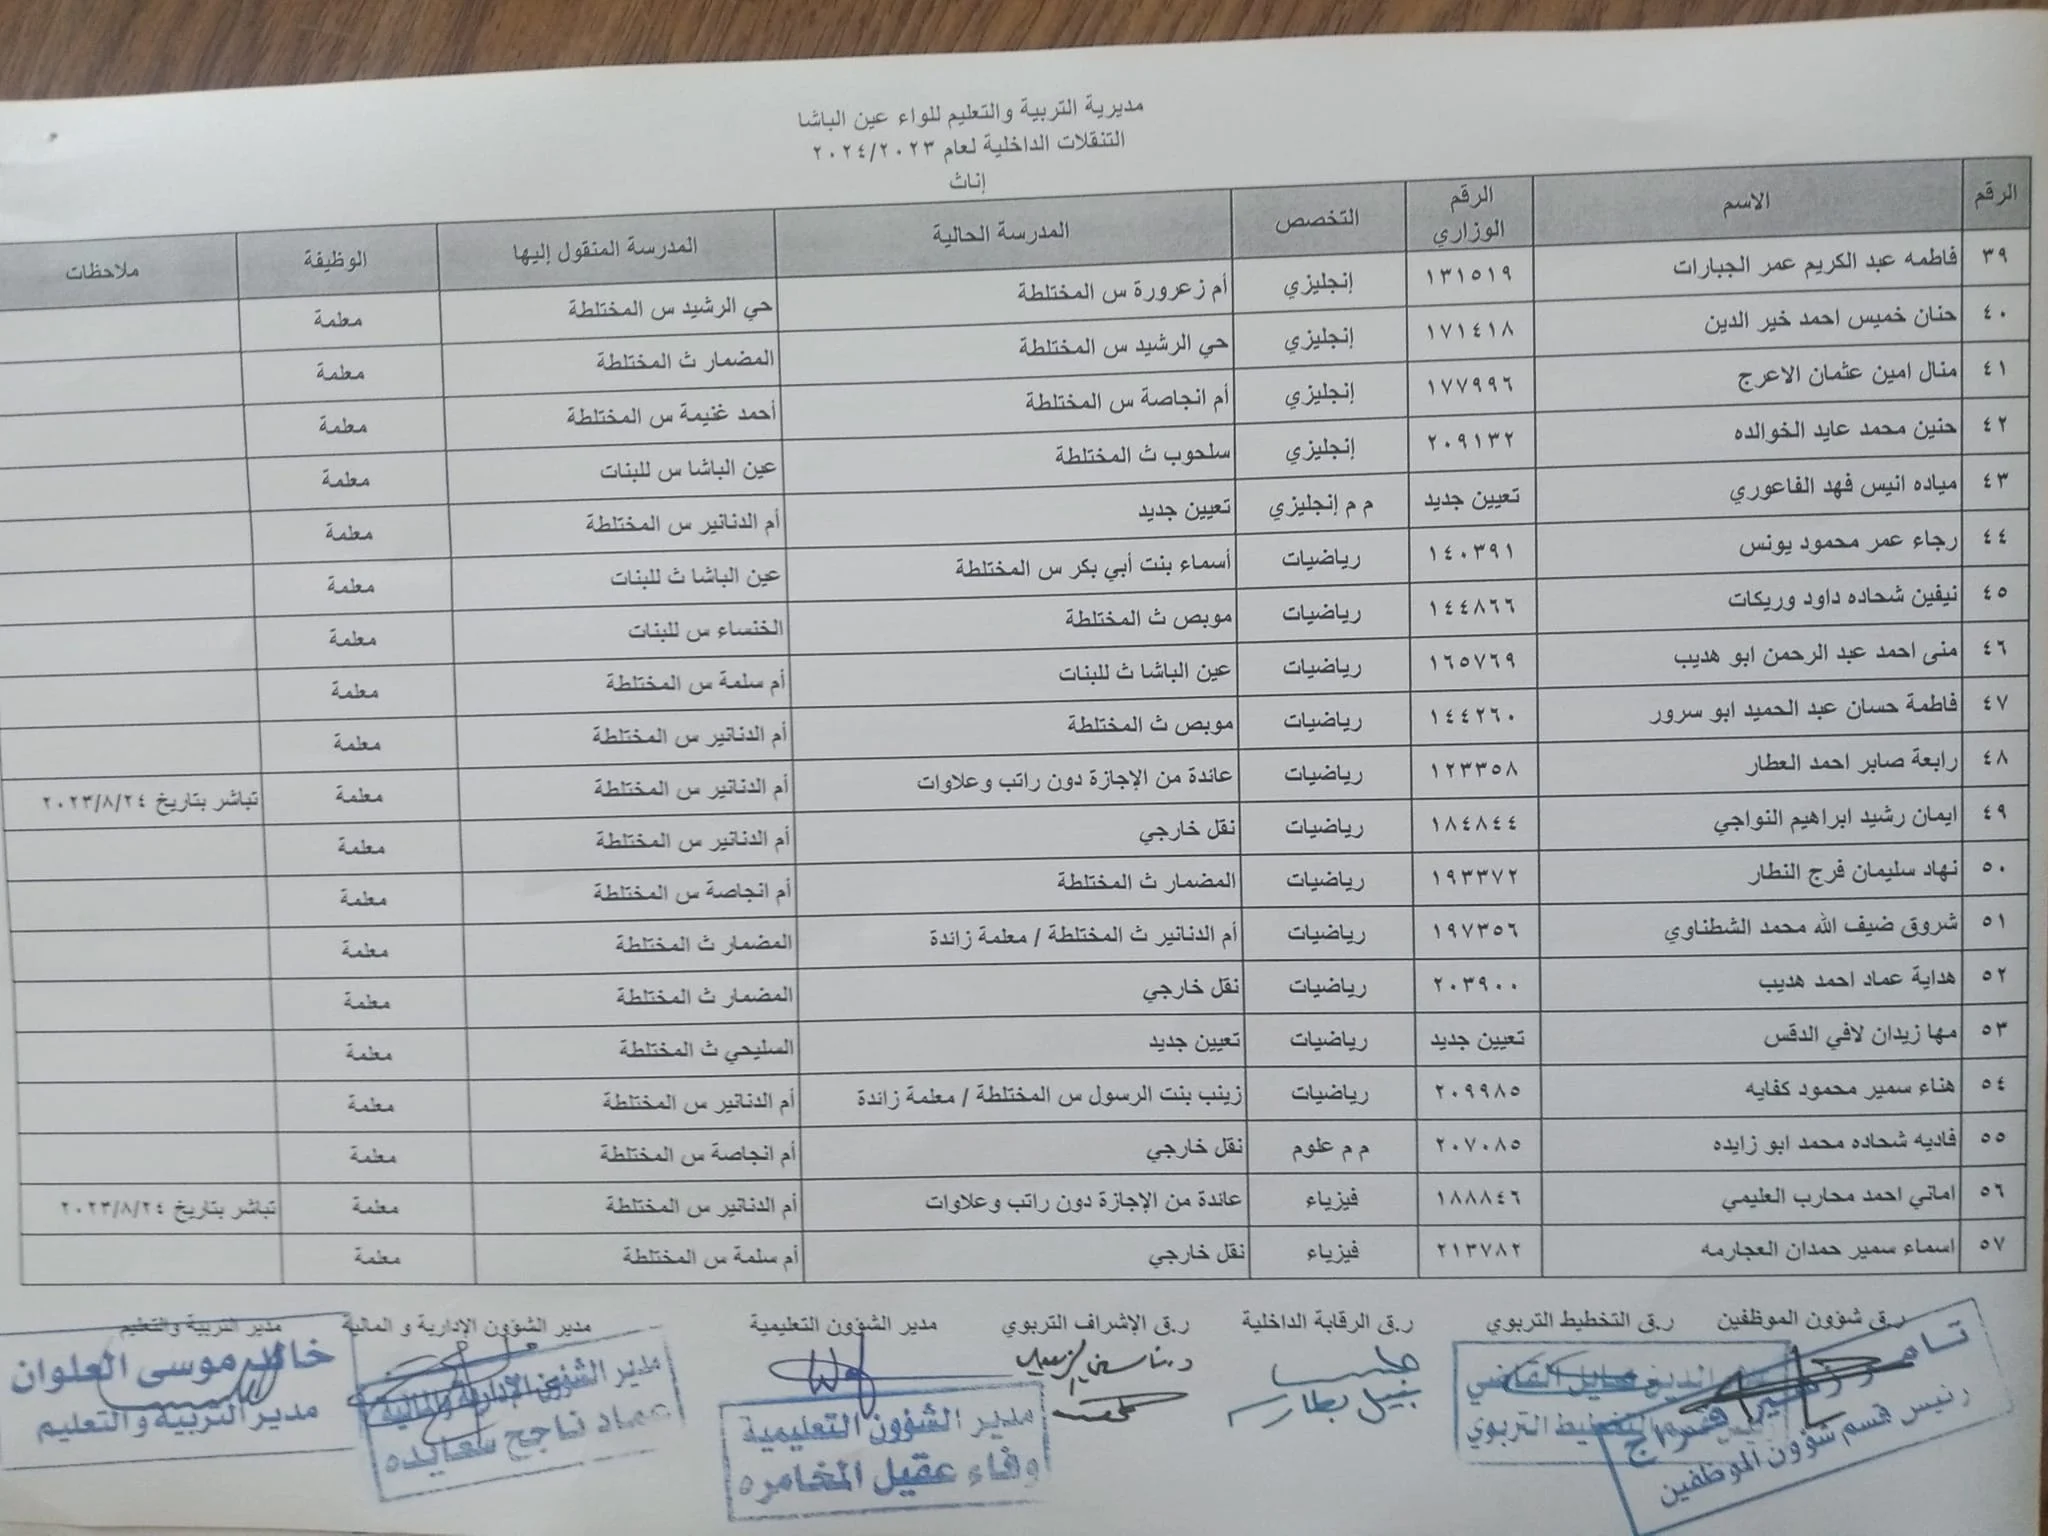 مديرية التربية والتعليم للواء عين الباشا
التنقلات الداخلية لعام ٢٠٢٤/٢٠٢٣
إناث
الرقم الاسم الرقم الوزاري التخصص المدرسة الحالية المدرسة المنقول إليها الوظيفة ملاحظات
٣٩ فاطمه عبد الكريم عمر الجبارات ١٣١٥١٩ إنجليزي أم زعرورة س المختلطة حي الرشيد س المختلطة معلمة
٤٠ حنان خميس احمد خير الدين ١٧١٤١٨ إنجليزي حي الرشيد س المختلطة المضمار ث المختلطة معلمة
٤١ منال امين عثمان الاعرج ١٧٧٩٩٦ إنجليزي أم انجاصة س المختلطة أحمد غنيمة س المختلطة معلمة
٤٢ حنين محمد عايد الخوالده ٢٠٩١٣٢ إنجليزي سلحوب ث المختلطة عين الباشا س للبنات معلمة
٤٣ مياده انيس فهد الفاعوري تعيين جديد م م إنجليزي تعيين جديد أم الدنانير س المختلطة معلمة
٤٤ رجاء عمر محمود يونس ١٤٠٣٩١ رياضيات أسماء بنت أبي بكر س المختلطة عين الباشا ث للبنات معلمة
٤٥ نيفين شحاده داود وريكات ١٤٤٨٦٦ رياضيات موبص ث المختلطة الخنساء س للبنات معلمة
٤٦ منى احمد عبد الرحمن ابو هديب ١٦٥٧٦٩ رياضيات عين الباشا ث للبنات أم سلمة س المختلطة معلمة
٤٧ فاطمة حسان عبد الحميد ابو سرور ١٤٤٢٦٠ رياضيات موبص ث المختلطة أم الدنانير س المختلطة معلمة
٤٨ رابعة صابر احمد العطار ١٢٣٣٥٨ رياضيات عائدة من الإجازة دون راتب وعلاوات أم الدنانير س المختلطة معلمة تباشر بتاريخ ٢٠٢٣/٨/٢٤
٤٩ ايمان رشيد ابراهيم النواجي ١٨٤٨٤٤ رياضيات نقل خارجي أم الدنانير س المختلطة معلمة
٥٠ نهاد سليمان فرج النطار ١٩٣٣٧٢ رياضيات المضمار ث المختلطة أم انجاصة س المختلطة معلمة
٥١ شروق ضيف الله محمد الشطناوي ١٩٧٣٥٦ رياضيات أم الدنانير ث المختلطة / معلمة زائدة المضمار ث المختلطة معلمة
٥٢ هداية عماد احمد هديب ٢٠٣٩٠٠ رياضيات نقل خارجي المضمار ث المختلطة معلمة
٥٣ مها زيدان لافي الدقس تعيين جديد رياضيات تعيين جديد السليحي ث المختلطة معلمة
٥٤ هناء سمير محمود كفايه ٢٠٩٩٨٥ رياضيات زينب بنت الرسول س المختلطة / معلمة زائدة أم الدنانير س المختلطة معلمة
٥٥ فاديه شحاده محمد ابو زايده ٢٠٧٠٨٥ م م علوم نقل خارجي أم انجاصة س المختلطة معلمة
٥٦ اماني احمد محارب العليمي ١٨٨٨٤٦ فيزياء عائدة من الإجازة دون راتب وعلاوات أم الدنانير س المختلطة معلمة تباشر بتاريخ ٢٠٢٣/٨/٢٤
٥٧ اسماء سمير حمدان العجارمه ٢١٣٧٨٢ فيزياء نقل خارجي أم سلمة س المختلطة معلمة
ر.ق شؤون الموظفين ر.ق التخطيط التربوي ر.ق الرقابة الداخلية ر.ق الإشراف التربوي مدير الشؤون التعليمية مدير الشؤون الإدارية و المالية مدير التربية والتعليم
رئيس قسم شؤون الموظفين
القاضي
التخطيط التربوي
نبيل بطارسه
مدير الشؤون التعليمية
وفاء عقيل المخامره
مدير الشؤون الإدارية والمالية
عماد ناجح سعايده
موسى العلوان
مدير التربية والتعليم